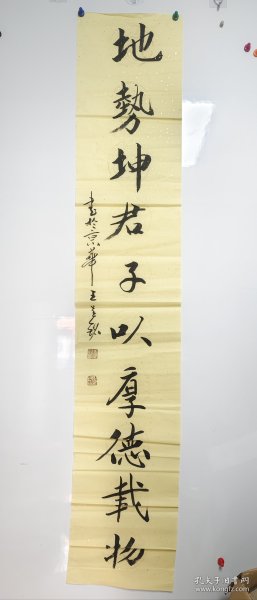 地勢坤君子以厚德載物
書於京華王
孔夫子旧书网
www.kongfz.com